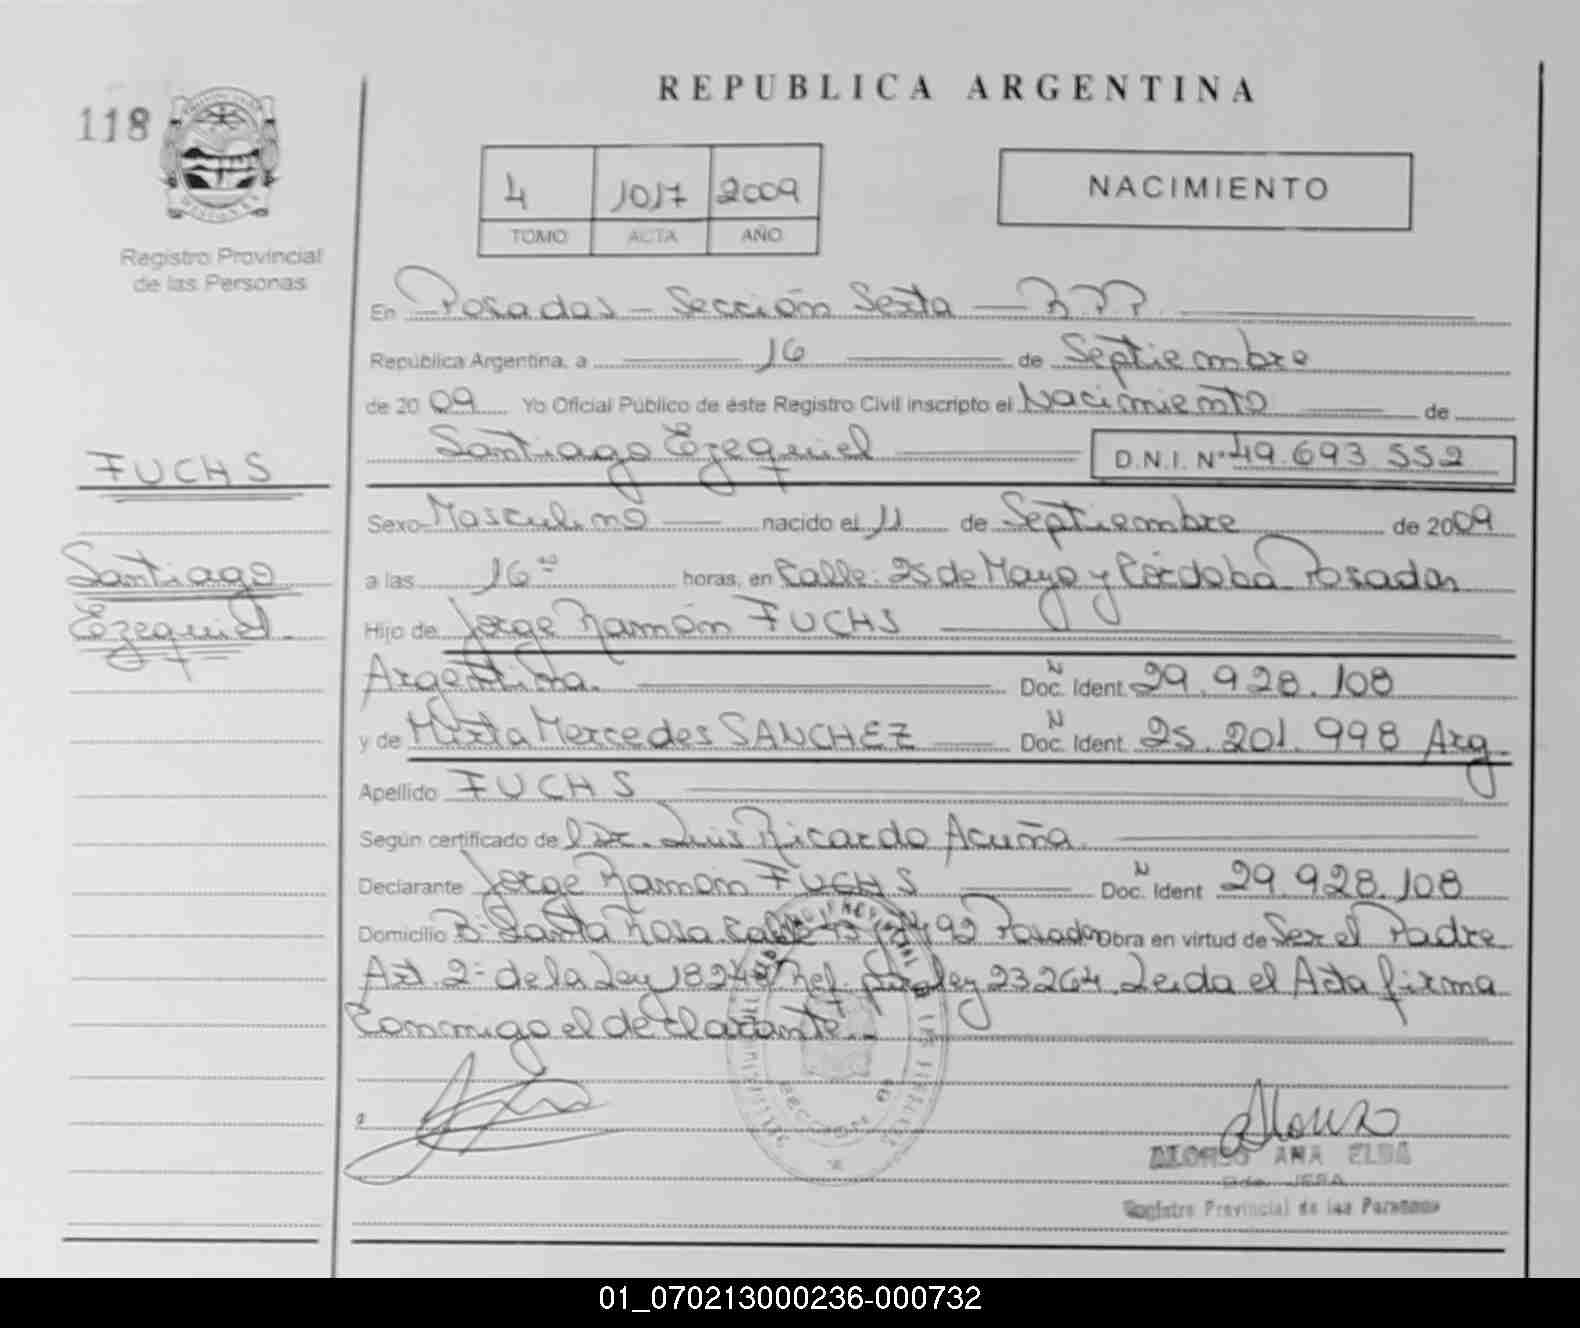 118
REPUBLICA ARGENTINA
4 1017 2009
TOMO ACTA AÑO
NACIMIENTO
Registro Provincial
de las Personas
En Posadas - Sección Sexta - R.P.P.
República Argentina, a 16 de Septiembre
de 2009 Yo Oficial Público de éste Registro Civil inscripto el Nacimiento de
Santiago Ezequiel D.N.I. Nº 49.693.552
FUCHS
Sexo Masculino nacido el 11 de Septiembre de 2009
Santiago
a las 16 horas, en Calle: 25 de Mayo y Córdoba Posadas
Ezequiel.
Hijo de Jorge Ramón FUCHS
Argentina. Doc. Ident. 29.928.108
y de Mirta Mercedes SANCHEZ Doc. Ident. 25.201.998 Arg.
Apellido FUCHS
Según certificado de Dr. Luis Ricardo Acuña.
Declarante Jorge Ramón FUCHS Doc. Ident 29.928.108
Domicilio Bº Santa Rosa Calle Posadas Obra en virtud de Ser el Padre
Art. 2º de la Ley 18248 Ref. por ley 23264. Leida el Acta firma
Conmigo el declarante.
Alonso
ALONSO ANA ELBA
JEFA
Registro Provincial de las Personas
01_070213000236-000732